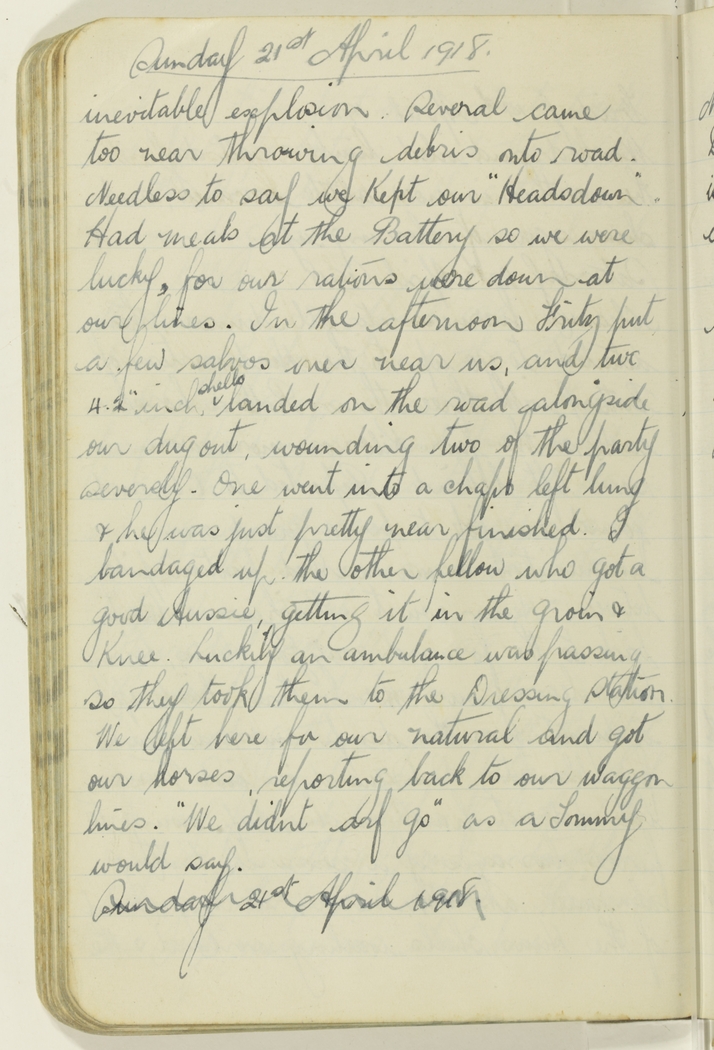 Sunday 21st April 1918.
inevitable explosion. Several came
too near throwing debris onto road.
Needless to say we kept our "Headsdown".
Had meals at the Battery so we were
lucky, for our rations were down at
our lines. In the afternoon Fritz put
a few salvos over near us, and two
4.2" inch shells landed on the road alongside
our dugout, wounding two of the party
severely. One went into a chaps left lung
& he was just pretty near finished. I
bandaged up the other fellow who got a
good Aussie, getting it in the groin &
Knee. Luckily an ambulance was passing
so they took them to the Dressing Station.
We left here for our natural and got
our horses, reporting back to our waggon
lines. "We didnt arf go" as a Tommy
would say.
Sunday 21st April 1918.